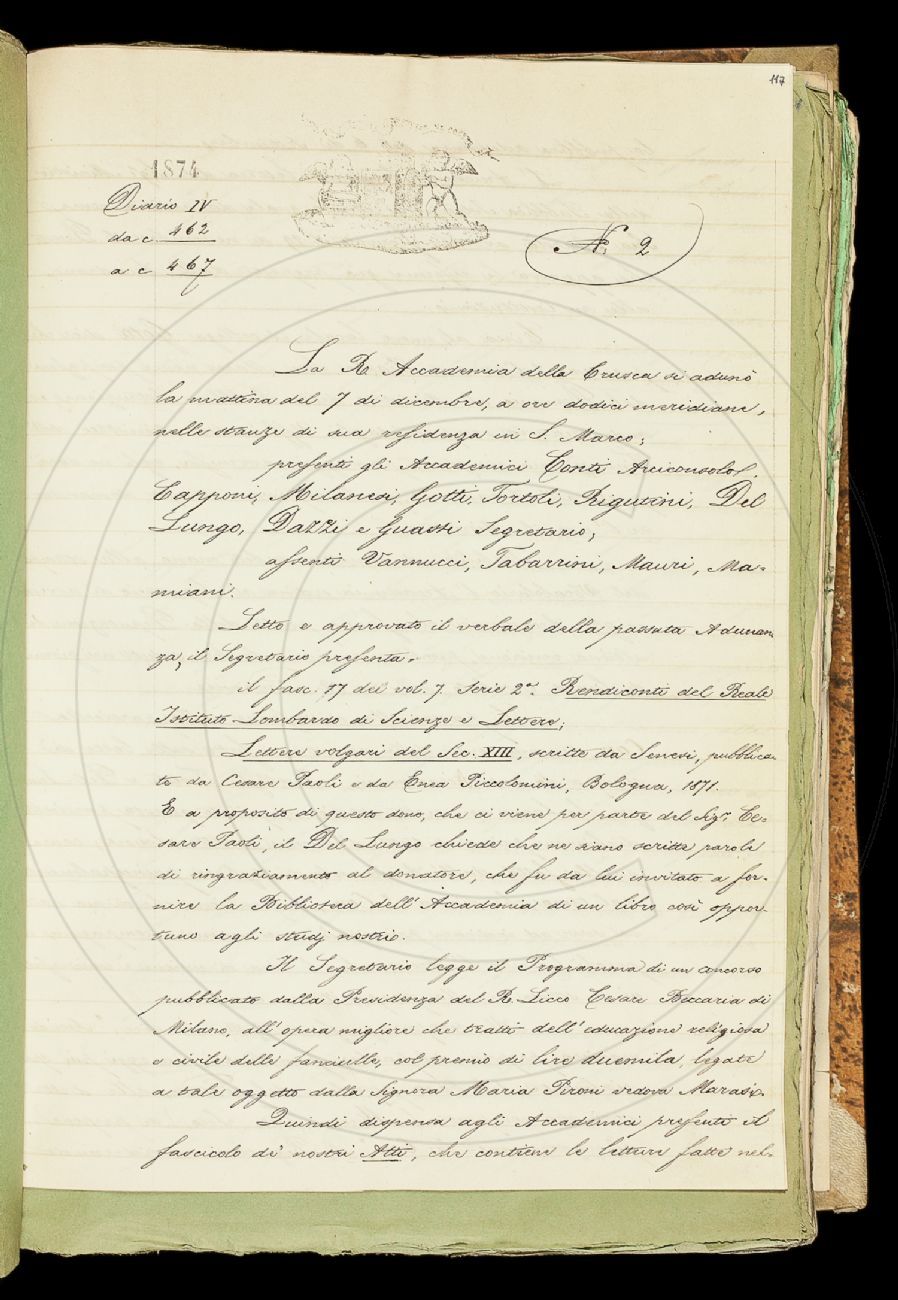 117
1874
Diario IV
da c 462
a c 467
N. 2
La R. Accademia della Crusca si adunò
la mattina del 7 di dicembre, a ore dodici meridiane,
nelle stanze di sua residenza in S. Marco;
presenti gli Accademici Conti Arciconsolo,
Capponi, Milanesi, Gotti, Tortoli, Rigutini, Del
Lungo, Dazzi e Guasti Segretario;
assenti Vannucci, Tabarrini, Mauri, Ma-
miani.
Letto e approvato il verbale della passata Adunan-
za, il Segretario presenta.
il fasc. 17 del vol. 7. Serie 2ª. Rendiconti del Reale
Istituto Lombardo di Scienze e Lettere;
Lettere volgari del Sec. XIII, scritte da Senesi, pubblica-
te da Cesare Paoli e da Enea Piccolomini, Bologna, 1871.
E a proposito di questo dono, che ci viene per parte del Sigr. Ce-
sare Paoli, il Del Lungo chiede che ne siano scritte parole
di ringraziamento al donatore, che fu da lui invitato a for-
nire la Biblioteca dell'Accademia di un libro così oppor-
tuno agli studj nostri.
Il Segretario legge il Programma di un concorso
pubblicato dalla Presidenza del R. Liceo Cesare Beccaria di
Milano, all'opera migliore che tratti dell'educazione religiosa
e civile delle fanciulle, col premio di lire duemila, legate
a tale oggetto dalla Signora Maria Pironi vedova Marasi.
Quindi dispensa agli Accademici presenti il
fascicolo de' nostri Atti, che contiene le letture fatte nel-